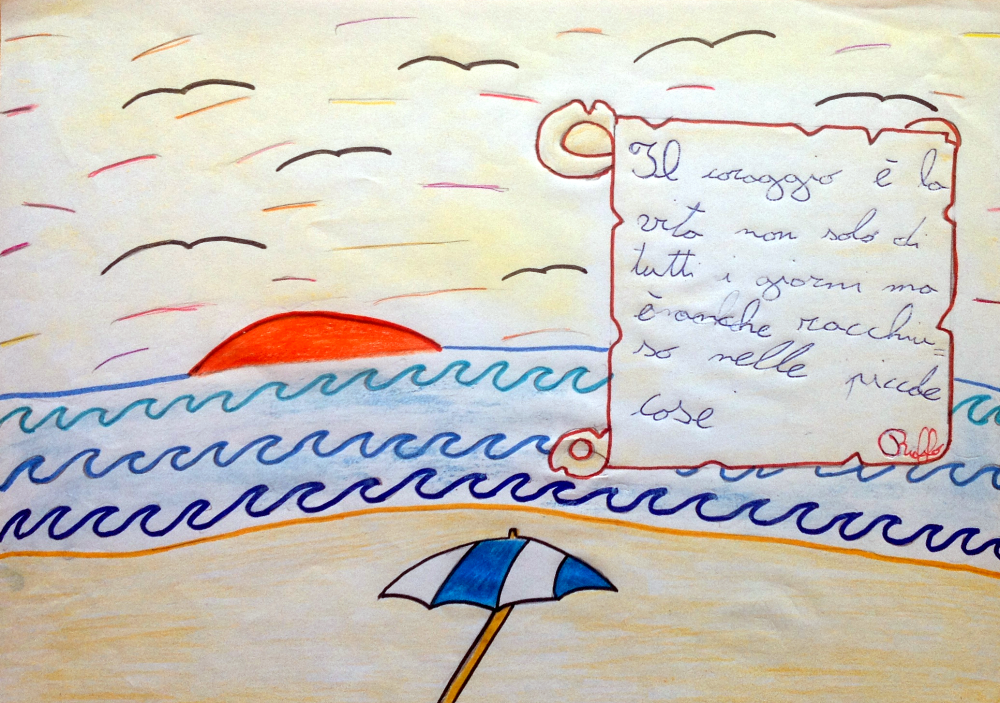 Il coraggio è la
vita non solo di
tutti i giorni ma
è anche racchiu=
so nelle piccole
cose